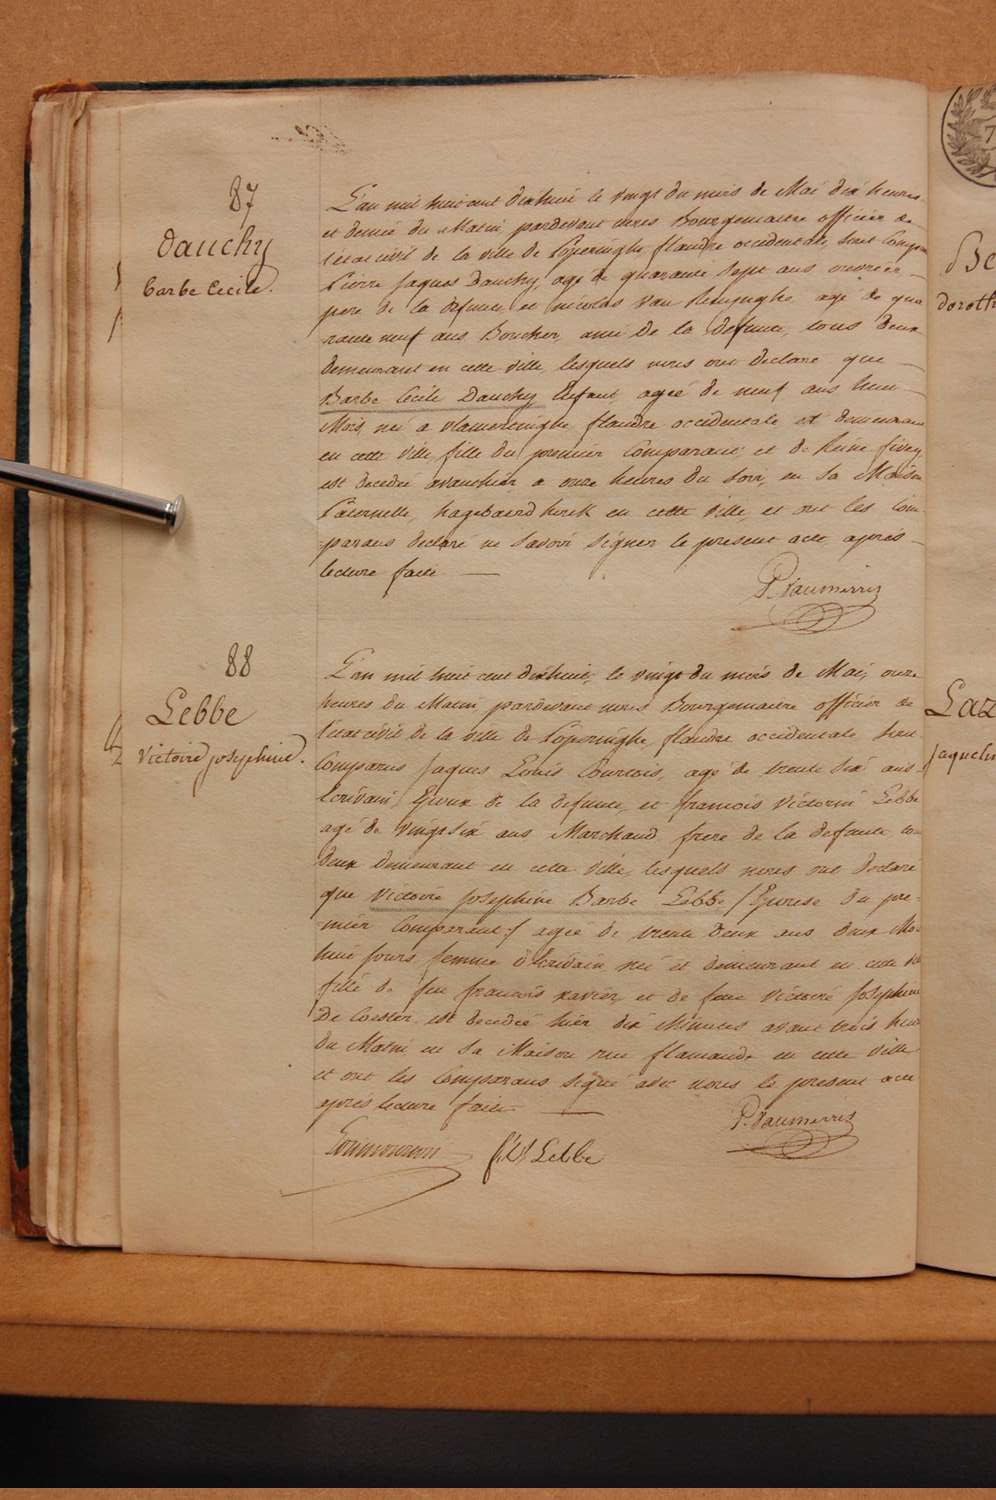 87
Dauchy
barbe Cecile.
L'an mil huit cent dixhuit le vingt du mois de Mai dix heures
et demie du Matin, pardevant nous Bourgemaitre officier de
l'etat civil de la ville de Poperinghe, flandre occidentale, sont Compa
Pierre Jaques Dauchy, agé de quarante sept ans ouvrier
pere de la defunte et nicolas Van agé de qua
rante neuf ans Boucher, ami de la defunte, tous deux
demeurant en cette ville, lesquels nous ont declaré que
Barbe Cecile Dauchy Enfant, ageé de neuf ans huit
Mois, neé a Vlamertinghe, flandre occidentale et demeurant
en cette ville, fille du premier Comparant, et de Reine
est decedeé avanthier a onze heures du soir, en sa Maison
Paternelle, en cette ville, et ont les Com-
parans declaré ne savoir signer le present acte, aprés
lecture faite
P. Vaumerris
88
Lebbe
Victoire josephine.
L'an mil huit cent dixhuit, le vingt du mois de Mai, onze
heures du Matin, pardevant nous Bourgemaitre officier de
l'etat civil de la ville de Poperinghe, flandre occidentale sont
Comparus Jaques Louis Courtois, agé de trente six ans
Ecrivain, Epoux de la defunte, et françois Victorin Lebbe
agé de vingt six ans Marchand, frere de la defunte, tou
deux demeurant en cette ville, lesquels nous ont declaré
que Victoire josephine Barbe Lebbe / Epouse du pre-
mier Comparant / ageé de trente deux ans deux Mo
huit jours, femme d'Ecrivain neé et demeurant en cette vil
fille de feu francois xavier, et de feue Victoire Josephine
De Coester, est decedeé hier dix Minutes avant trois heu
du Matin en sa Maison rue flamande en cette ville
et ont les Comparans signé avec nous le present acte
aprés lecture faite
P. Vaumerris
Lebbe
Be
doroth
Laz
jaquelin
7